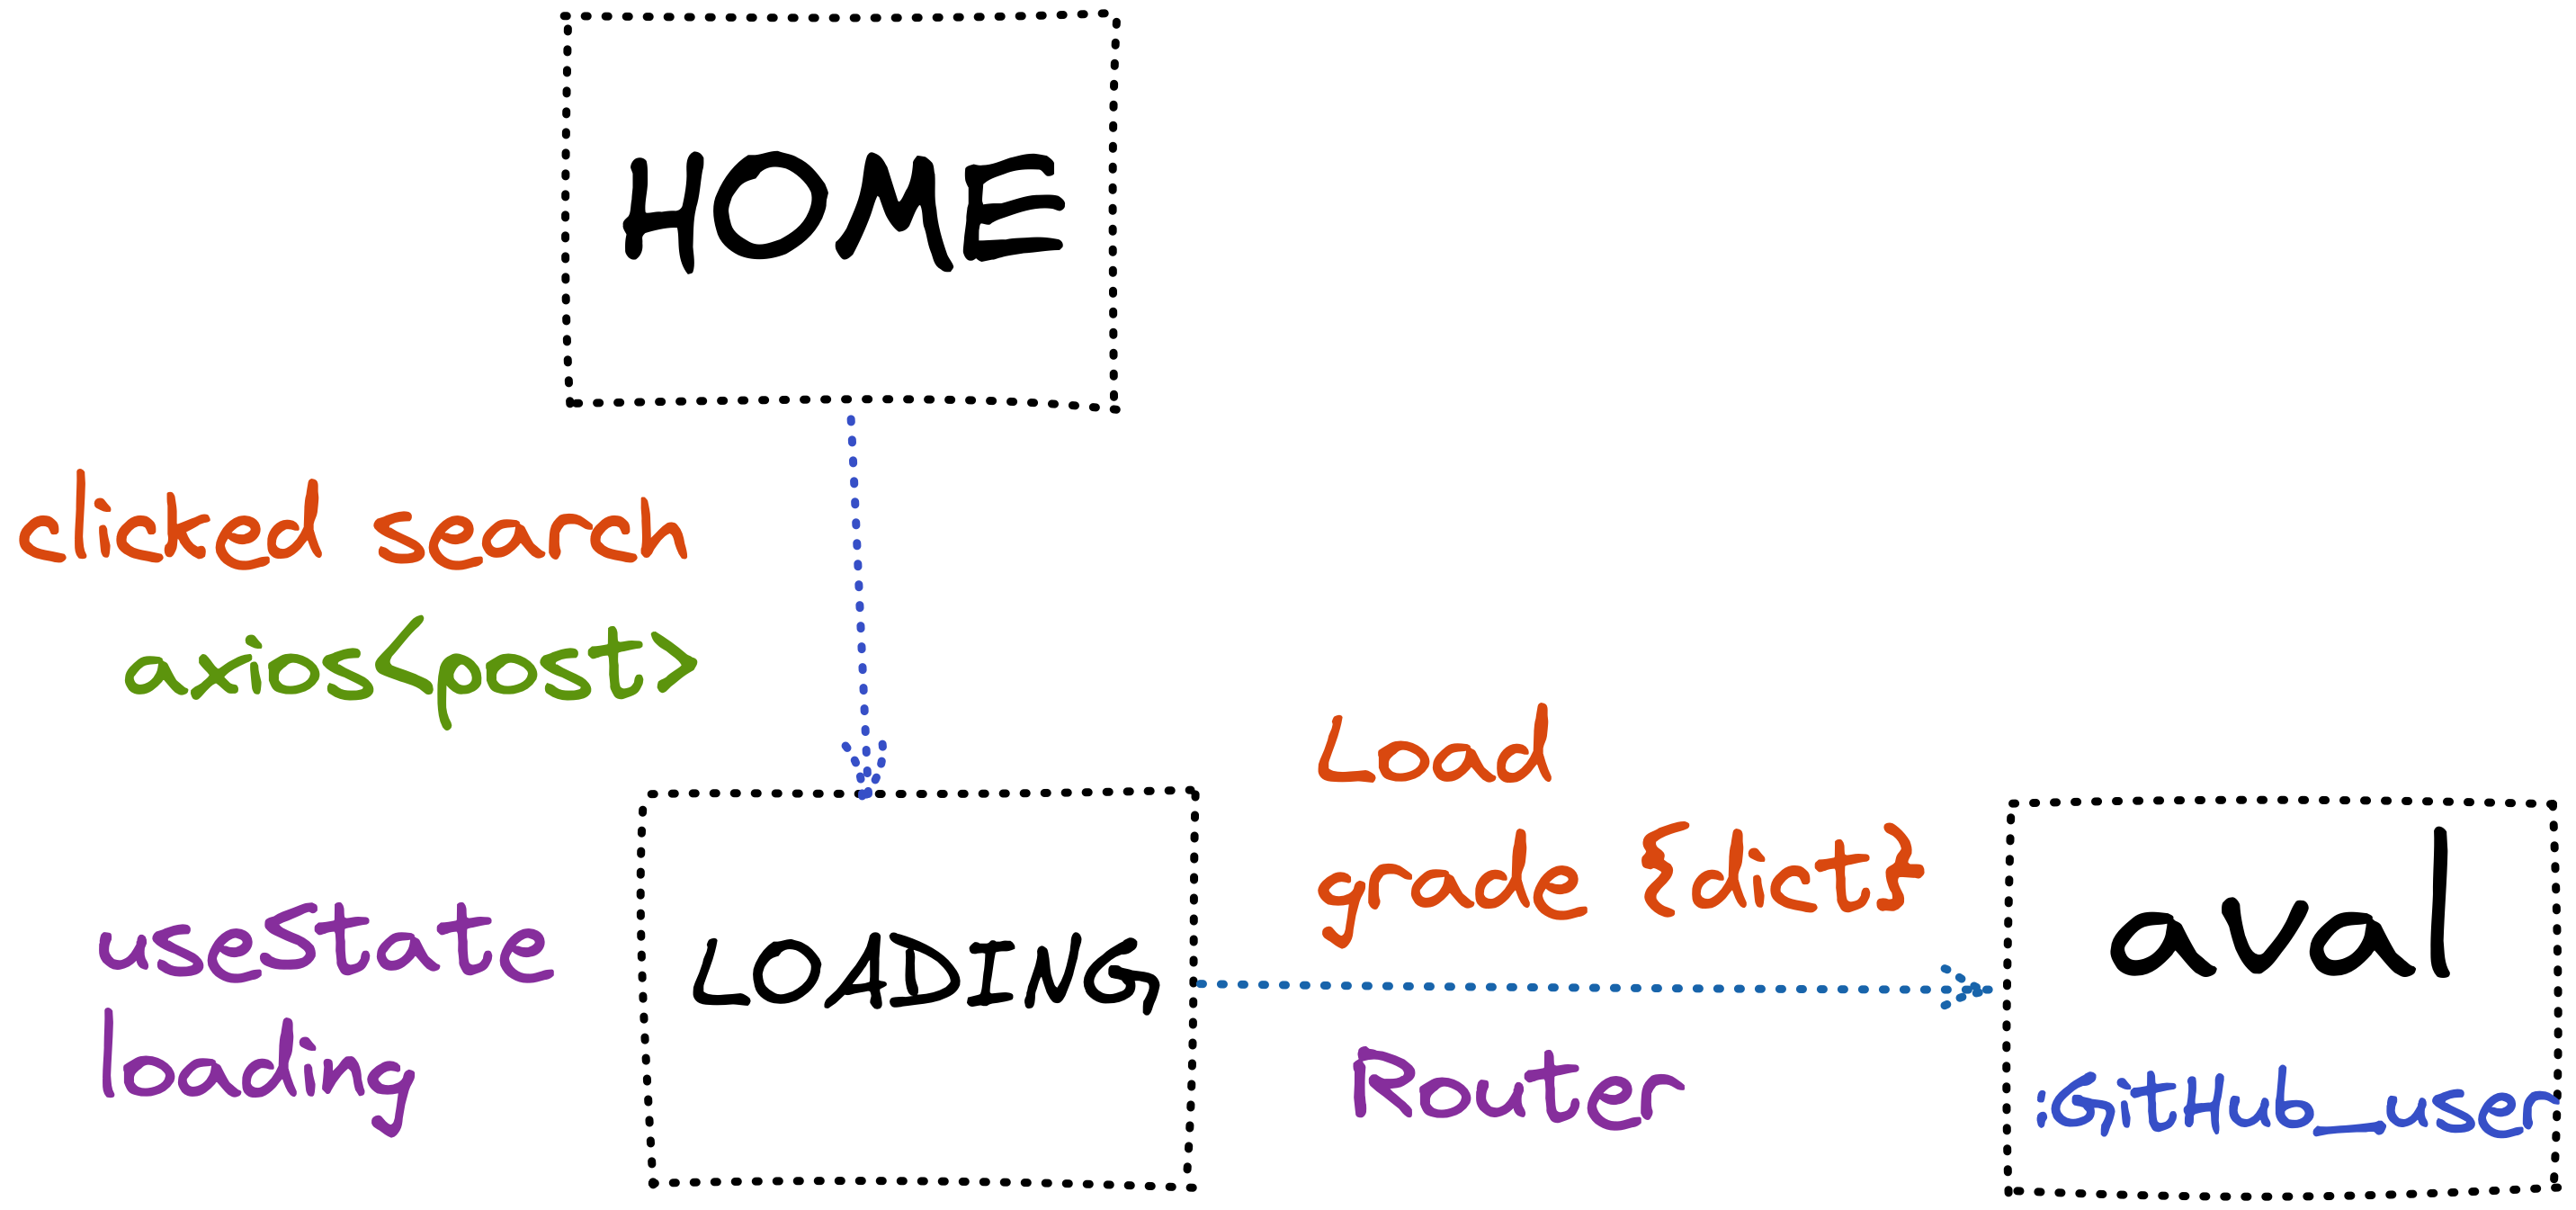 HOME
clicked search
axios<post>
useState
loading
LOADING
Load
grade {dict}
Router
aval
:GitHub_user